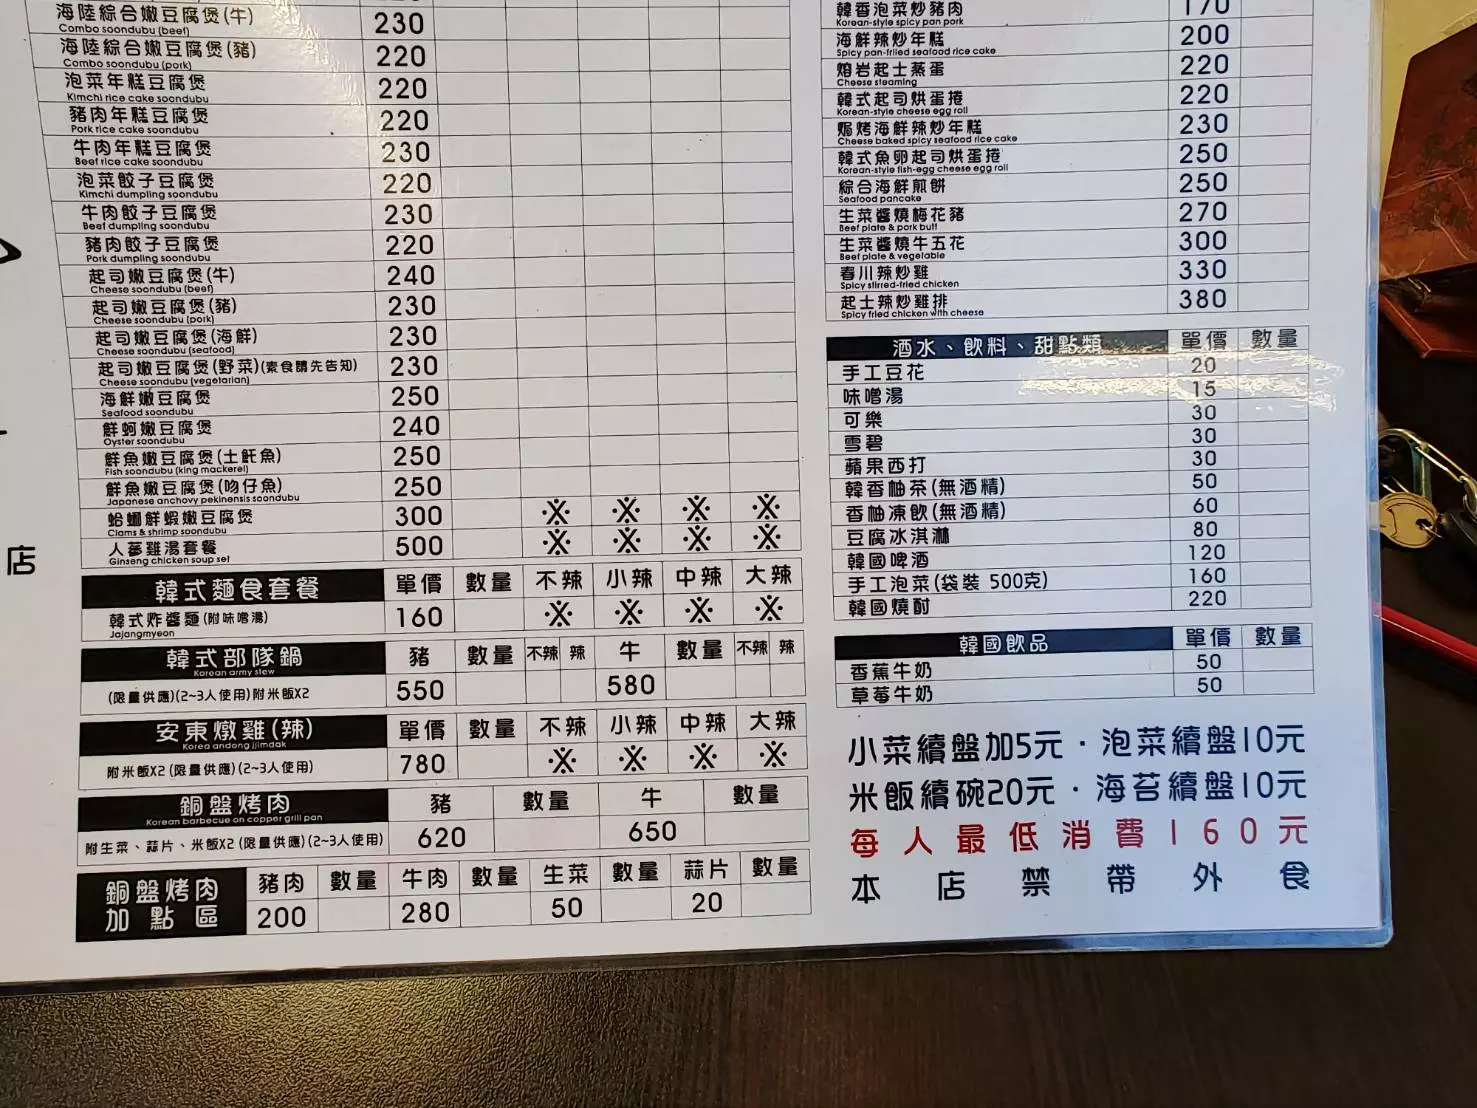 海陸綜合嫩豆腐煲(牛) 230
Combo soondubu (beef)
海陸綜合嫩豆腐煲(豬) 220
Combo soondubu (pork)
泡菜年糕豆腐煲 220
Kimchi rice cake soondubu
豬肉年糕豆腐煲 220
Pork rice cake soondubu
牛肉年糕豆腐煲 230
Beef rice cake soondubu
泡菜餃子豆腐煲 220
Kimchi dumpling soondubu
牛肉餃子豆腐煲 230
Beef dumpling soondubu
豬肉餃子豆腐煲 220
Pork dumpling soondubu
起司嫩豆腐煲(牛) 240
Cheese soondubu (beef)
起司嫩豆腐煲(豬) 230
Cheese soondubu (pork)
起司嫩豆腐煲(海鮮) 230
Cheese soondubu (seafood)
起司嫩豆腐煲(野菜)(素食請先告知) 230
Cheese soondubu (vegetarian)
海鮮嫩豆腐煲 250
Seafood soondubu
鮮蚵嫩豆腐煲 240
Oyster soondubu
鮮魚嫩豆腐煲(土魠魚) 250
Fish soondubu (king mackerel)
鮮魚嫩豆腐煲(吻仔魚) 250
Japanese anchovy pekinensis soondubu
蛤蜊鮮蝦嫩豆腐煲 300 ※ ※ ※ ※
Clams & shrimp soondubu
人蔘雞湯套餐 500 ※ ※ ※ ※
Ginseng chicken soup set
店
韓式麵食套餐 單價 數量 不辣 小辣 中辣 大辣
韓式炸醬麵(附味噌湯) 160 ※ ※ ※ ※
Jajangmyeon
韓式部隊鍋 豬 數量 不辣 辣 牛 數量 不辣 辣
Korean army stew
(限量供應)(2~3人使用)附米飯X2 550 580
安東燉雞(辣) 單價 數量 不辣 小辣 中辣 大辣
Korea andong jjimdak
附米飯X2(限量供應)(2~3人使用) 780 ※ ※ ※ ※
銅盤烤肉 豬 數量 牛 數量
Korean barbecue on copper grill pan
附生菜、蒜片、米飯X2(限量供應)(2~3人使用) 620 650
銅盤烤肉 豬肉 數量 牛肉 數量 生菜 數量 蒜片 數量
加點區 200 280 50 20
韓香泡菜炒豬肉 170
Korean-style spicy pan pork
海鮮辣炒年糕 200
Spicy pan-fried seafood rice cake
熔岩起士蒸蛋 220
Cheese steaming
韓式起司烘蛋捲 220
Korean-style cheese egg roll
焗烤海鮮辣炒年糕 230
Cheese baked spicy seafood rice cake
韓式魚卵起司烘蛋捲 250
Korean-style fish-egg cheese egg roll
綜合海鮮煎餅 250
Seafood pancake
生菜醬燒梅花豬 270
Beef plate & pork butt
生菜醬燒牛五花 300
Beef plate & vegetable
春川辣炒雞 330
Spicy stirred-fried chicken
起士辣炒雞排 380
Spicy fried chicken with cheese
酒水、飲料、甜點類 單價 數量
手工豆花 20
味噌湯 15
可樂 30
雪碧 30
蘋果西打 30
韓香柚茶(無酒精) 50
香柚凍飲(無酒精) 60
豆腐冰淇淋 80
韓國啤酒 120
手工泡菜(袋裝 500克) 160
韓國燒酎 220
韓國飲品 單價 數量
香蕉牛奶 50
草莓牛奶 50
小菜續盤加5元·泡菜續盤10元
米飯續碗20元·海苔續盤10元
每人最低消費160元
本店禁帶外食